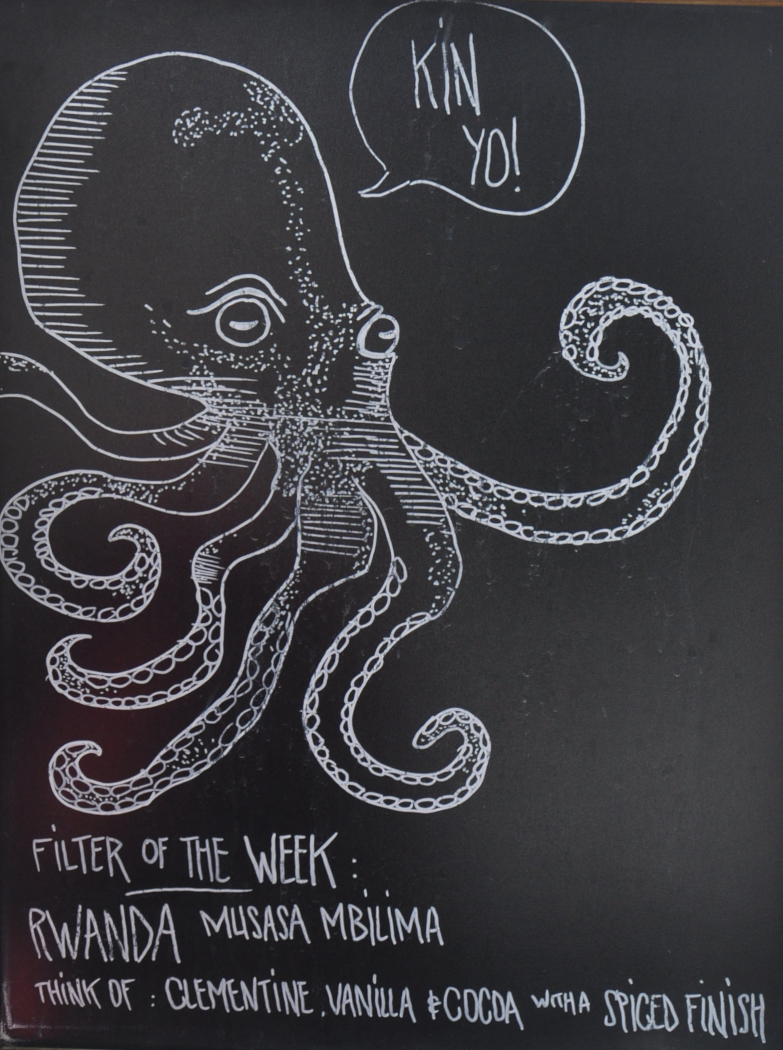 KiN
YO!
FiLTER OF THE WEEK :
RWANDA MUSASA MBiLiMA
THiNK OF : CLEMENTiNE, VANiLLA & COCOA WITH A SPiCED FiNiSH